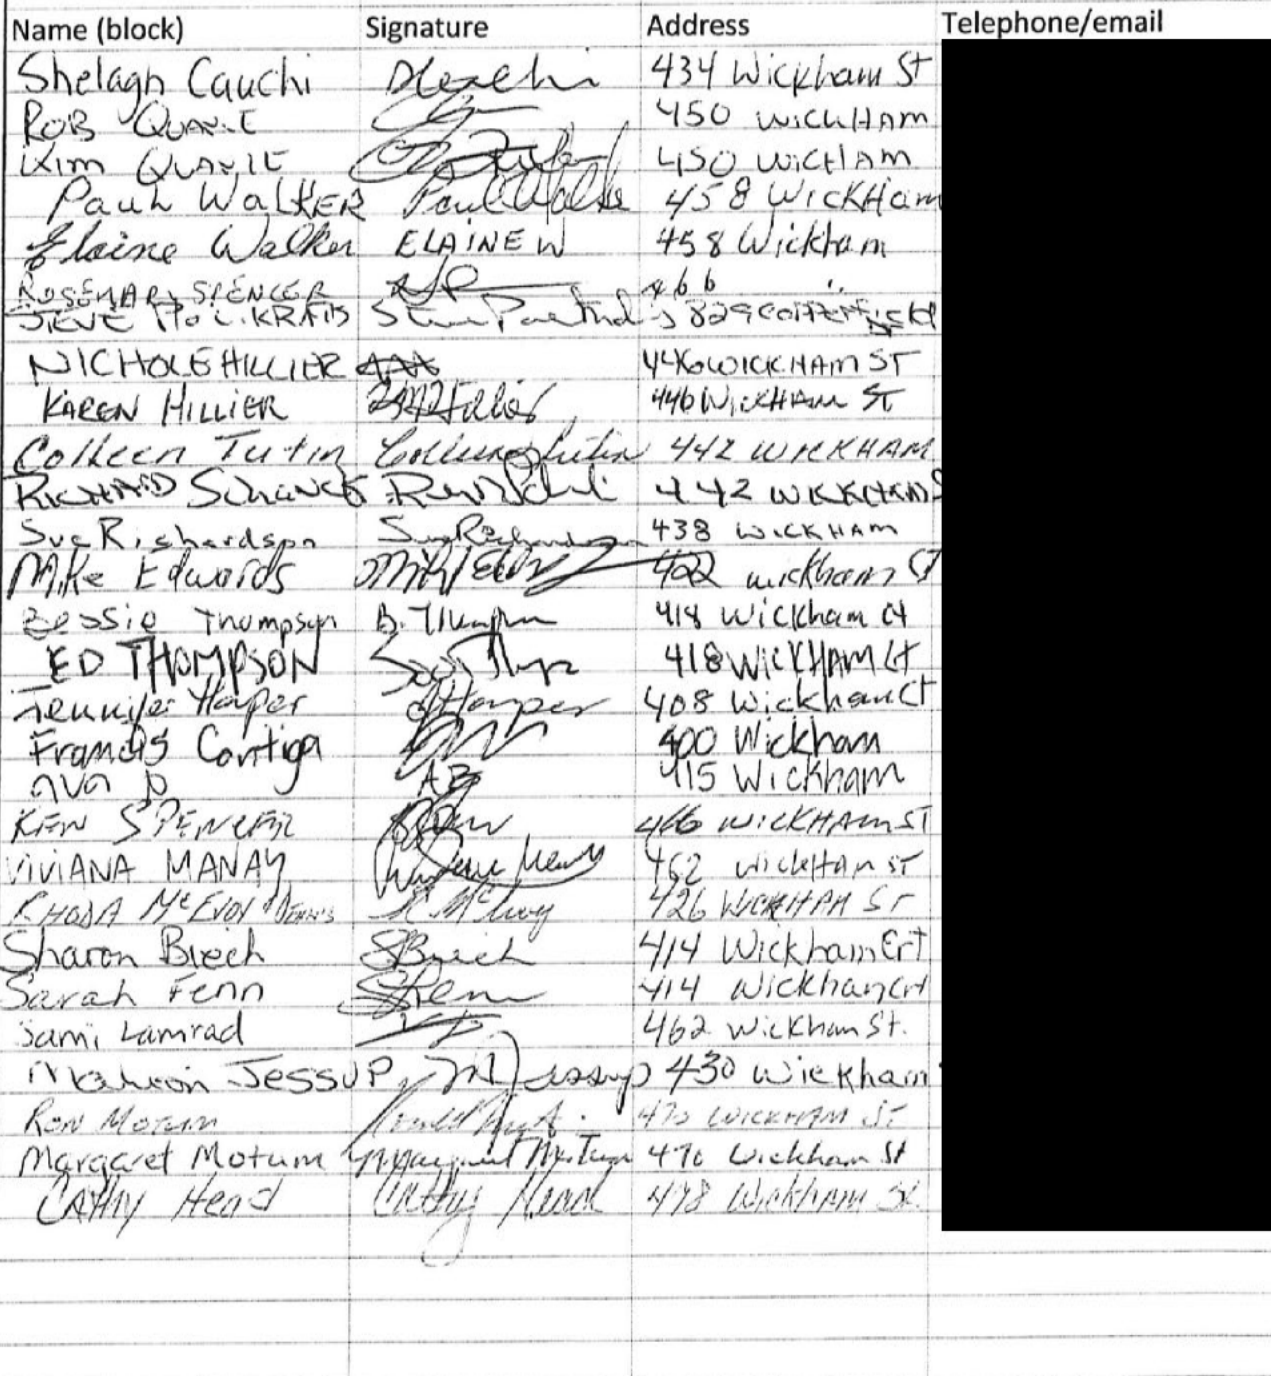 Name (block) Signature Address Telephone/email
Shelagh Cauchi 434 Wickham St
ROB 450 WICKHAM
KIM 450 WICKHAM
Paul WALKER Paul Walker 458 WICKHam
Elaine Walker ELAINE W 458 Wickham
ROSEMARY SPENCER 466 "
829
NICHOLE HILLIER 446 WICKHAM ST
KAREN HILLIER 446 WICKHAM ST
Colleen Tutin Colleen Tutin 442 WICKHAM
RICHARD 442 WICKHAM
Sue Richardson Sue Richardson 438 WICKHAM
Mike Edwards 422 wickham
Bessie Thompson B. Thompson 418 Wickham Ct
ED THOMPSON 418 WICKHAM Ct
Jennifer Harper JHarper 408 Wickham Ct
Francis 400 Wickham
ava AB 415 Wickham
KEN SPENCER 466 WICKHAM ST
VIVIANA MANAY 462 WickHam ST
RHODA McEVOY DENNIS R McEvoy 426 WICKHAM ST
Sharon 414 Wickham Crt
Sarah Fenn SFenn 414 Wickham Crt
Sami Lamrad 462 Wickham St.
JESSUP M Jessup 430 Wickham
RON MOTUM 470 WICKHAM ST
Margaret Motum Margaret Motum 470 Wickham St
CATHY Head Cathy Head 478 WickHAM St.